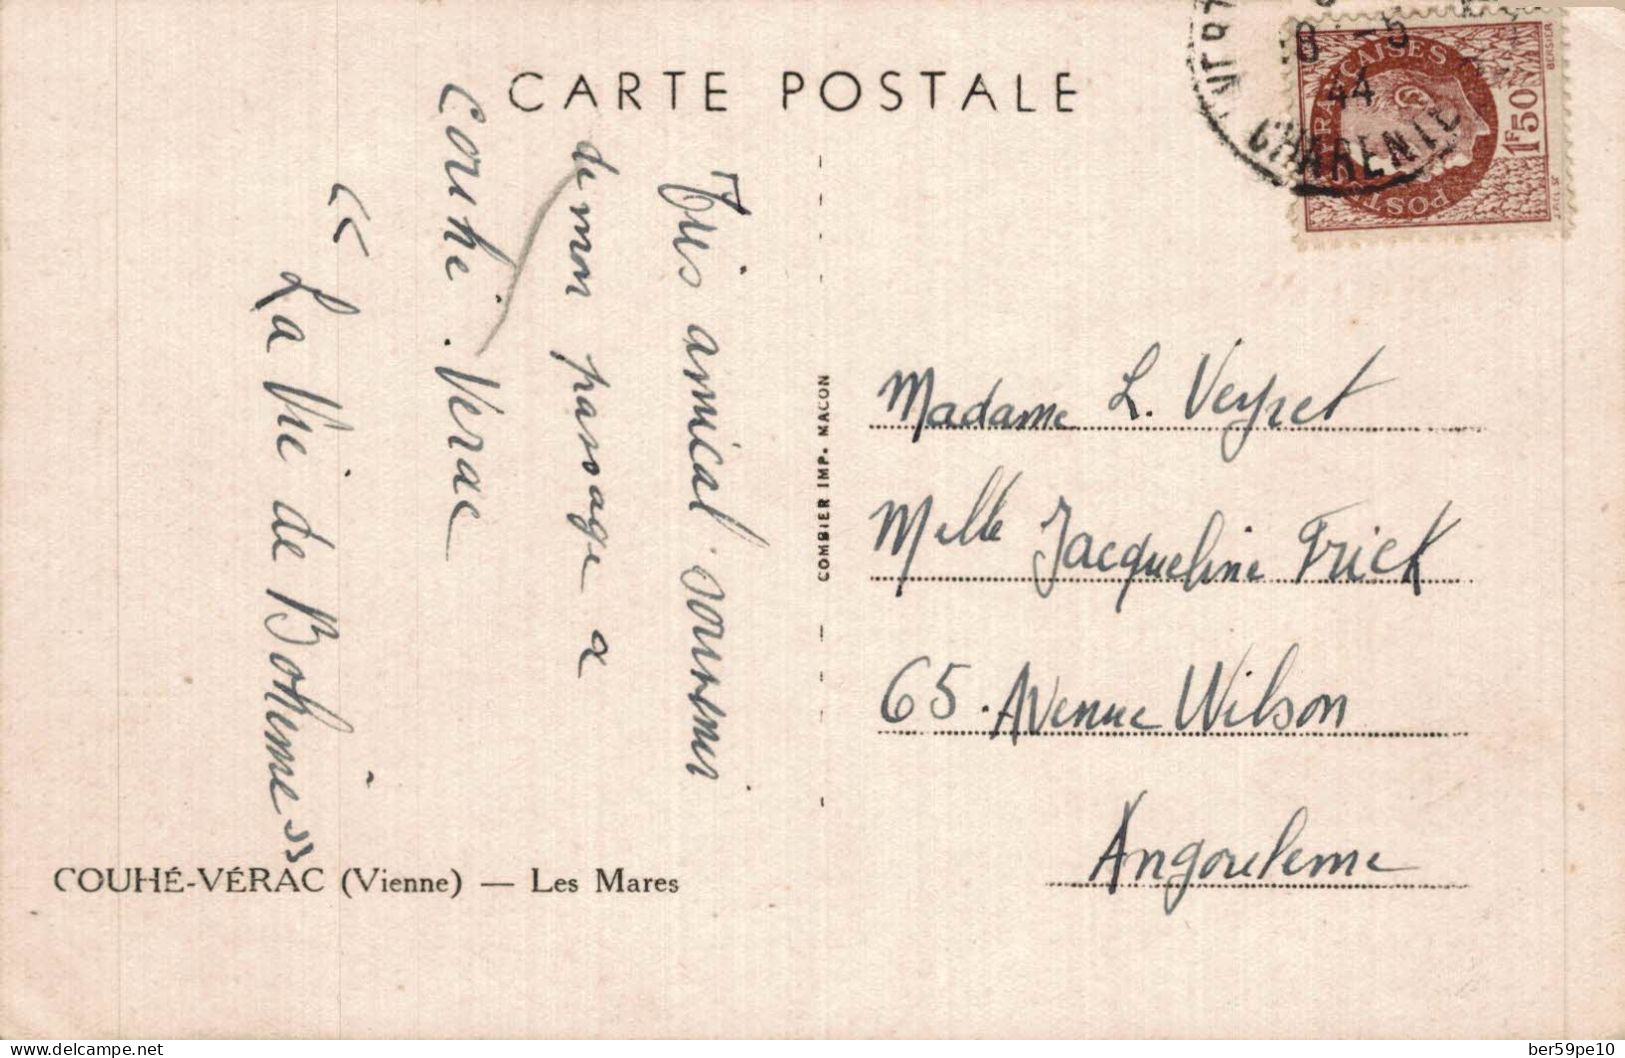 CARTE POSTALE
Très amical souvenir
de mon passage a
Couhé.Verac
"La Vie de Bohème"
COUHÉ-VÉRAC (Vienne) — Les Mares
COMBIER IMP. MACON
8 -5
44
CHARENTE
POSTES FRANÇAISES
1F50
BERSIER
Madame L. Veyret
Melle Jacqueline Frick
65. Avenue Wilson
Angouleme
delcampe.net
ber59pe10